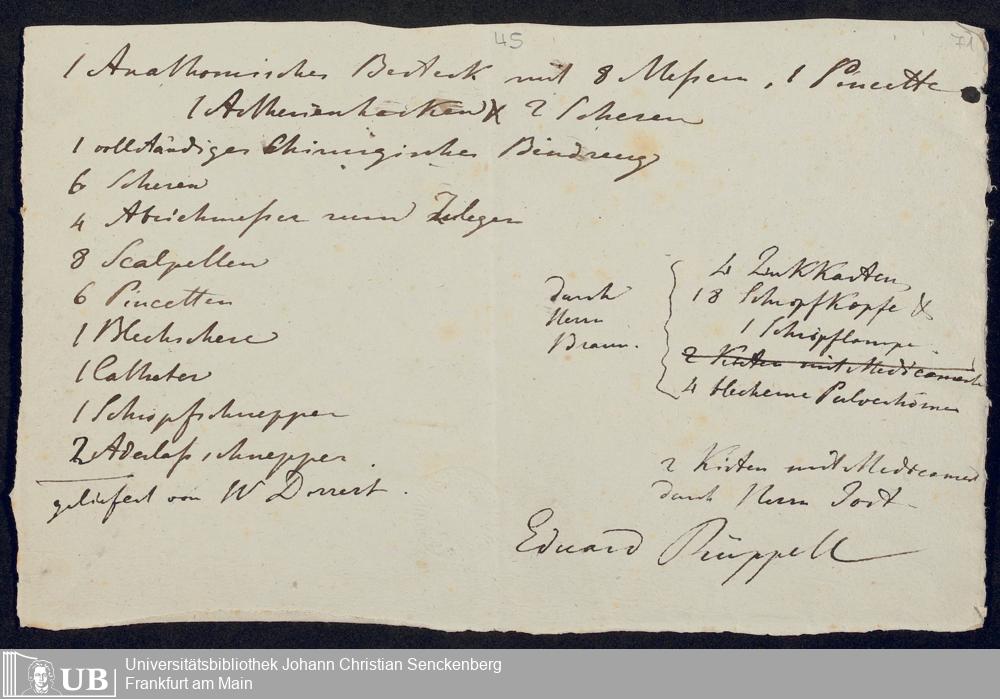 45
71
1 Anathomisches Besteck mit 8 Messern, 1 Pincette
1 Artherienhacken & 2 Scheren
1 vollständiges Chirurgisches Bindzeug
6 Scheren
4 zum Zulegen
8 Scalpellen
6 Pincetten
1 Blechschere
1 Catheter
1 Schröpfschnepper
2 Aderlaßschnepper
geliefert von W Dorrest.
durch
Herrn
Braun.
4
18 Schröpfköpfe &
1 Schröpflampe.
2 Kisten mit Medicament
4 blecherne Pulverhörner
2 Kisten mit Medicament
durch Herrn Jost
Eduard Rüppell
UB
Universitätsbibliothek Johann Christian Senckenberg
Frankfurt am Main